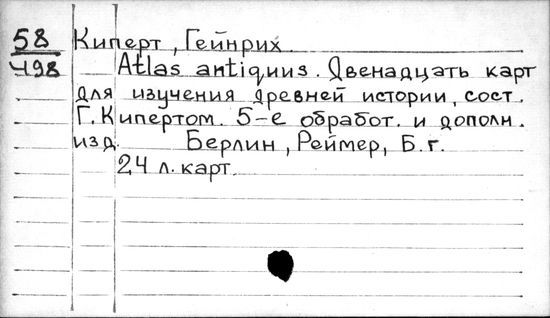 58 Киперт, Гейнрих.
498 Atlas antiquus. Двенадцать карт
для изучения древней истории, сост.
Г. Кипертом. 5-е обработ. и дополн.
изд. Берлин, Реймер, Б. г.
24 л. карт.